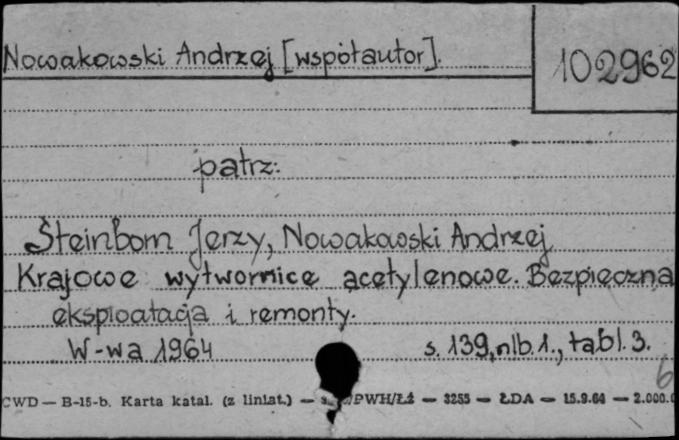 Nowakowski Andrzej [współautor].
102962
patrz:
Steinborn Jerzy, Nowakowski Andrzej
Krajowe wytwornice acetylenowe. Bezpieczna
eksploatacja i remonty.
W-wa 1964 s. 139, nlb. 1., tabl. 3.
6
CWD — B-15-b. Karta katal. (z liniat.) — PWH/Łż — 3255 — ŁDA — 15.9.64 — 2.000.0